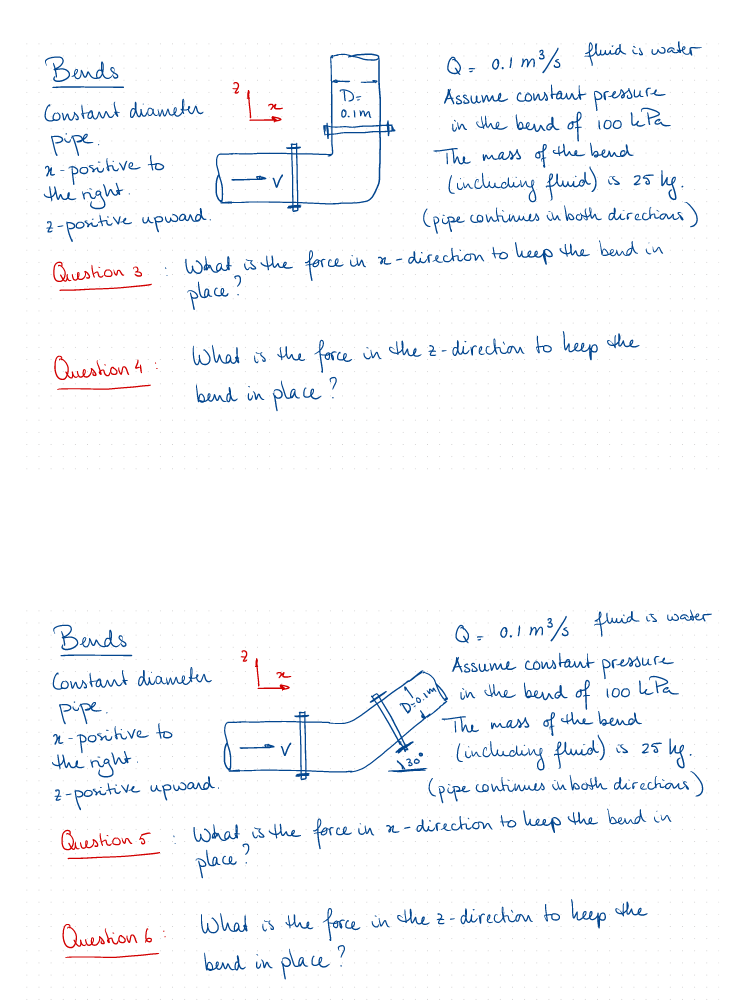 Bends
Constant diameter
pipe.
x-positive to
the right.
z-positive upward.
z
x
D=
0.1m
V
Q = 0.1 m³/s fluid is water
Assume constant pressure
in the bend of 100 kPa
The mass of the bend
(including fluid) is 25 kg.
(pipe continues in both directions)
Question 3 : What is the force in x-direction to keep the bend in
place?
Question 4 : What is the force in the z-direction to keep the
bend in place?
Bends
Constant diameter
pipe.
x-positive to
the right.
z-positive upward.
z
x
V
D=0.1m
30°
Q = 0.1 m³/s fluid is water
Assume constant pressure
in the bend of 100 kPa
The mass of the bend
(including fluid) is 25 kg.
(pipe continues in both directions)
Question 5 : What is the force in x-direction to keep the bend in
place?
Question 6 : What is the force in the z-direction to keep the
bend in place?